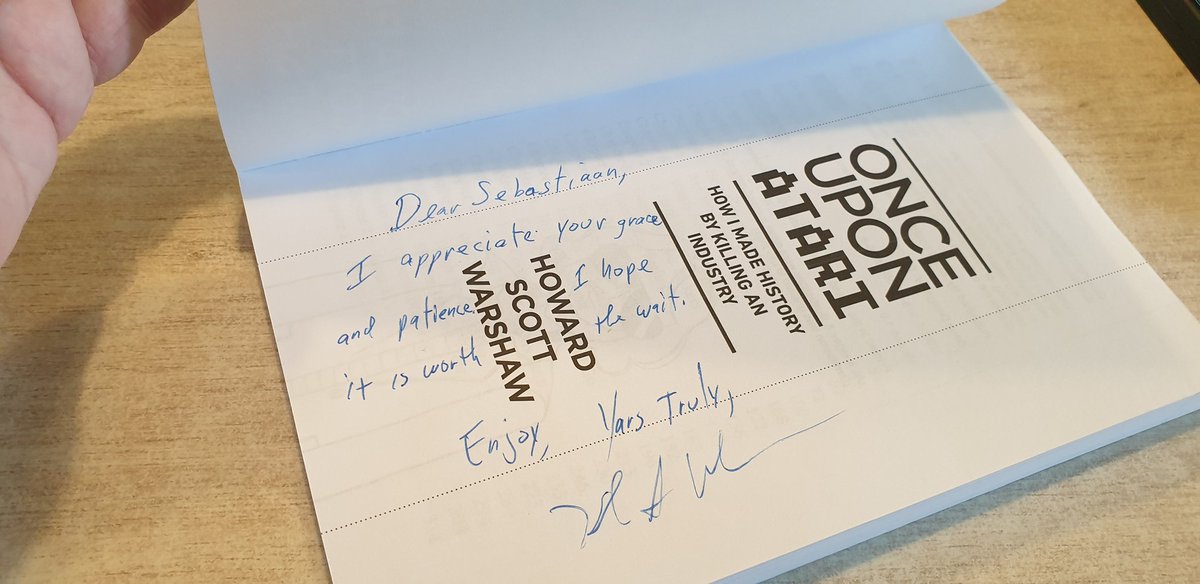 ONCE
UPON
ATARI
HOW I MADE HISTORY
BY KILLING AN
INDUSTRY
HOWARD
SCOTT
WARSHAW
Dear Sebastiaan,
I appreciate your grace
and patience. I hope
it is worth the wait.
Enjoy, Yars Truly,